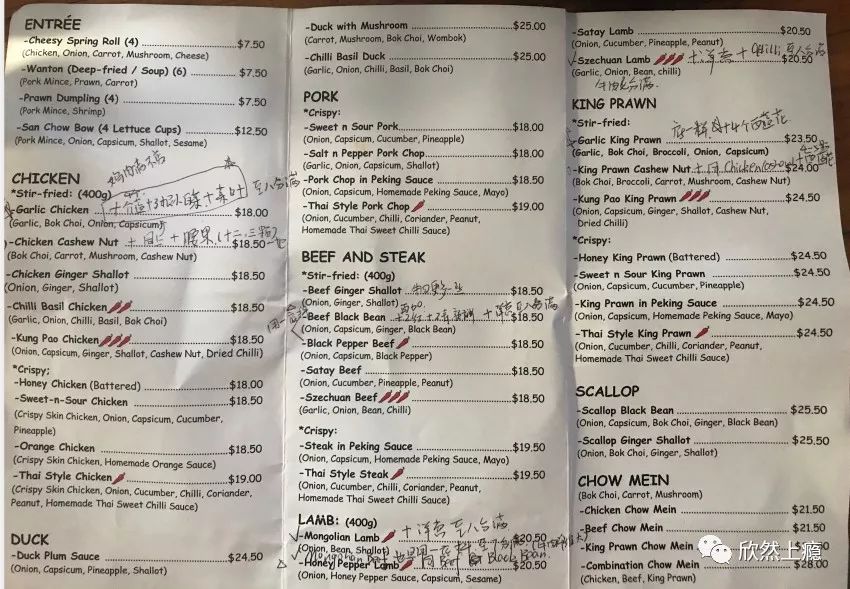 ENTRÉE
-Cheesy Spring Roll (4) $7.50
(Chicken, Onion, Carrot, Mushroom, Cheese)
-Wanton (Deep-fried / Soup) (6) $7.50
(Pork Mince, Prawn, Carrot)
-Prawn Dumpling (4) $7.50
(Pork Mince, Shrimp)
-San Chow Bow (4 Lettuce Cups) $12.50
(Pork Mince, Onion, Capsicum, Shallot, Sesame)
CHICKEN
*Stir-fried: (400g)
-Garlic Chicken $18.00
(Garlic, Bok Choi, Onion, Capsicum)
-Chicken Cashew Nut
(Bok Choi, Carrot, Mushroom, Cashew Nut)
-Chicken Ginger Shallot $18.50
(Onion, Ginger, Shallot)
-Chilli Basil Chicken $18.50
(Garlic, Onion, Chilli, Basil, Bok Choi)
-Kung Pao Chicken $18.50
(Onion, Capsicum, Ginger, Shallot, Cashew Nut, Dried Chilli)
*Crispy;
-Honey Chicken (Battered) $18.00
-Sweet-n-Sour Chicken $18.50
(Crispy Skin Chicken, Onion, Capsicum, Cucumber,
Pineapple)
-Orange Chicken $18.50
(Crispy Skin Chicken, Homemade Orange Sauce)
-Thai Style Chicken $19.00
(Crispy Skin Chicken, Onion, Cucumber, Chilli, Coriander,
Peanut, Homemade Thai Sweet Chilli Sauce)
DUCK
-Duck Plum Sauce $24.50
(Onion, Capsicum, Pineapple, Shallot)
-Duck with Mushroom $25.00
(Carrot, Mushroom, Bok Choi, Wombok)
-Chilli Basil Duck $25.00
(Garlic, Onion, Chilli, Basil, Bok Choi)
PORK
*Crispy:
-Sweet n Sour Pork $18.00
(Onion, Capsicum, Cucumber, Pineapple)
-Salt n Pepper Pork Chop $18.00
(Garlic, Onion, Capsicum, Shallot)
-Pork Chop in Peking Sauce $18.50
(Onion, Capsicum, Homemade Peking Sauce, Mayo)
-Thai Style Pork Chop $19.00
(Onion, Cucumber, Chilli, Coriander, Peanut,
Homemade Thai Sweet Chilli Sauce)
BEEF AND STEAK
*Stir-fried: (400g)
-Beef Ginger Shallot $18.50
(Onion, Ginger, Shallot)
-Beef Black Bean $18.50
(Onion, Capsicum, Ginger, Black Bean)
-Black Pepper Beef $18.50
(Onion, Capsicum, Black Pepper)
-Satay Beef $18.50
(Onion, Cucumber, Pineapple, Peanut)
-Szechuan Beef $18.50
(Garlic, Onion, Bean, Chilli)
*Crispy:
-Steak in Peking Sauce $19.50
(Onion, Capsicum, Homemade Peking Sauce, Mayo)
-Thai Style Steak $19.50
(Onion, Cucumber, Chilli, Coriander, Peanut,
Homemade Thai Sweet Chilli Sauce)
LAMB: (400g)
-Mongolian Lamb $20.50
(Onion, Bean, Shallot)
-Honey Pepper Lamb $20.50
(Onion, Honey Pepper Sauce, Capsicum, Sesame)
-Satay Lamb $20.50
(Onion, Cucumber, Pineapple, Peanut)
-Szechuan Lamb $20.50
(Garlic, Onion, Bean, chilli)
KING PRAWN
*Stir-fried:
-Garlic King Prawn $23.50
(Garlic, Bok Choi, Broccoli, Onion, Capsicum)
-King Prawn Cashew Nut $24.00
(Bok Choi, Broccoli, Carrot, Mushroom, Cashew Nut)
-Kung Pao King Prawn $24.50
(Onion, Capsicum, Ginger, Shallot, Cashew Nut,
Dried Chilli)
*Crispy:
-Honey King Prawn (Battered) $24.00
-Sweet n Sour King Prawn $24.50
(Onion, Capsicum, Cucumber, Pineapple)
-King Prawn in Peking Sauce $24.50
(Onion, Capsicum, Homemade Peking Sauce, Mayo)
-Thai Style King Prawn $24.50
(Onion, Cucumber, Chilli, Coriander, Peanut,
Homemade Thai Sweet Chilli Sauce)
SCALLOP
-Scallop Black Bean $25.50
(Onion, Capsicum, Bok Choi, Ginger, Black Bean)
-Scallop Ginger Shallot $25.50
(Onion, Bok Choi, Ginger, Shallot)
CHOW MEIN
(Bok Choi, Carrot, Mushroom)
-Chicken Chow Mein $21.50
-Beef Chow Mein $21.50
-King Prawn Chow Mein
-Combination Chow Mein $28.00
(Chicken, Beef, King Prawn)
欣然上瘾